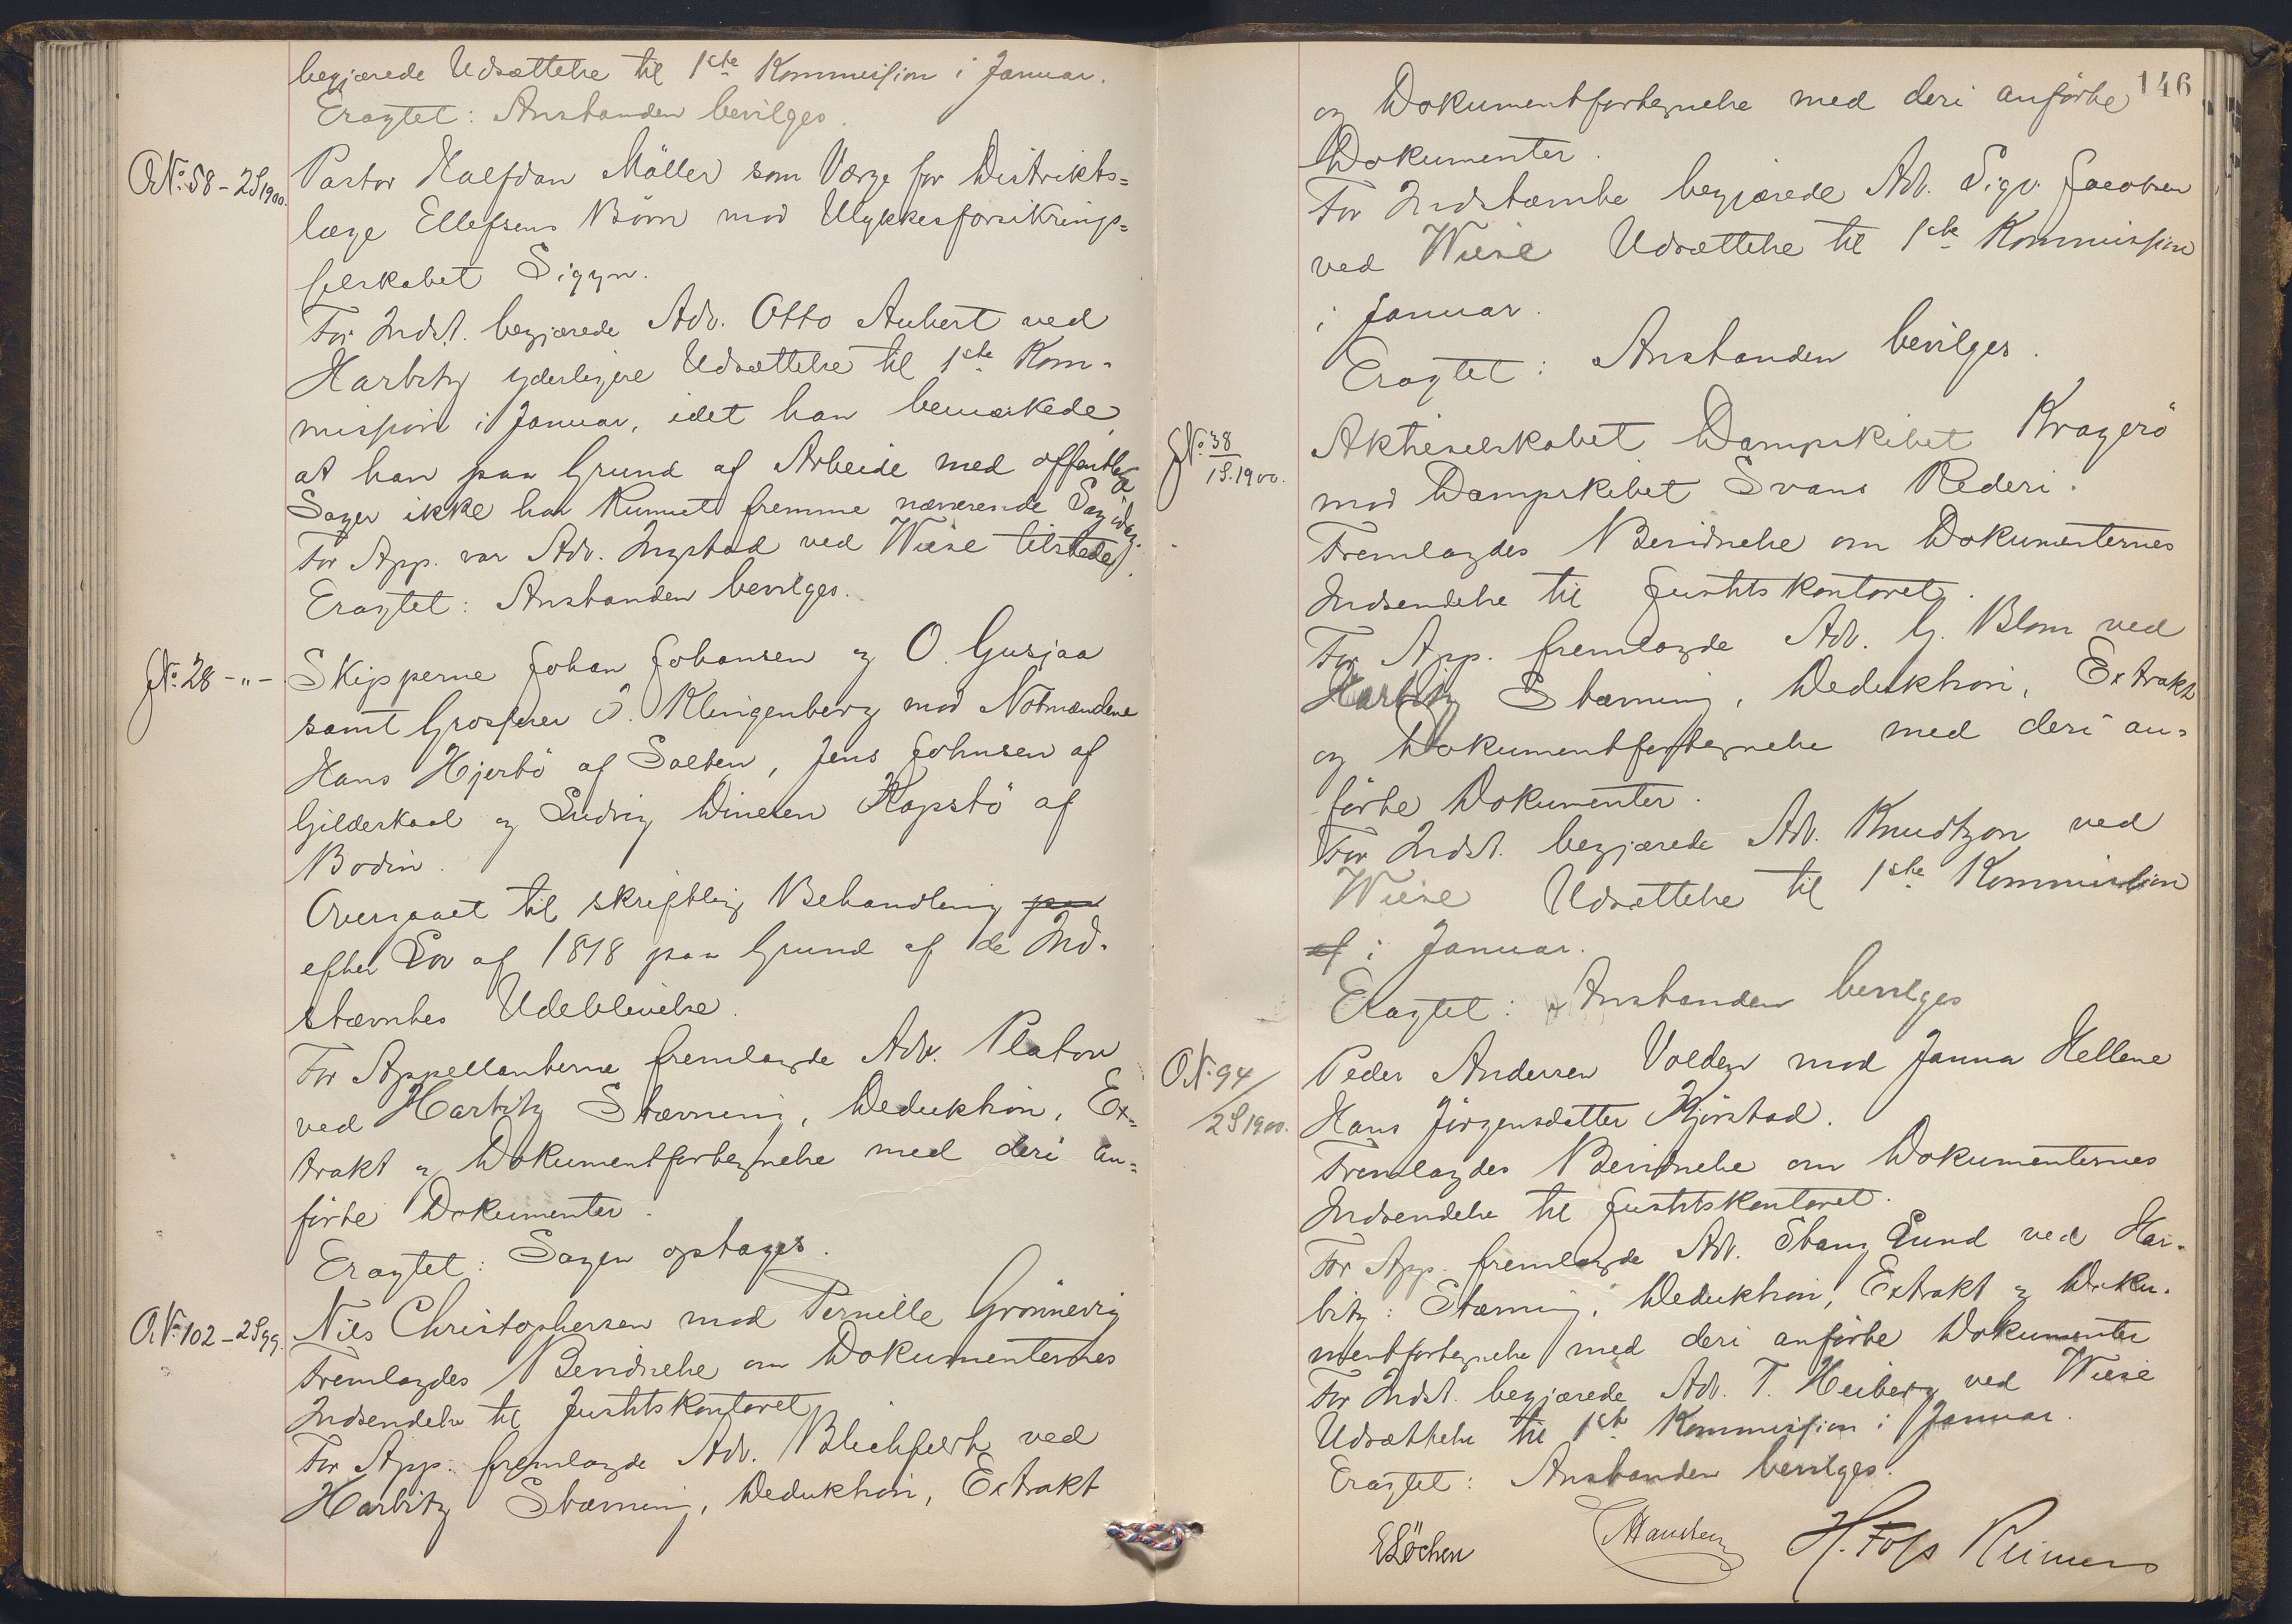 begjærede Udsættelse til 1ste Kommission i Januar.
Eragtet: Anstanden bevilges.
O.N.º 58 - 2S1900.
Pastor Halfdan Möller som Værge for Distrikts=
læge Ellefsens Börn mod Ulykkesforsikrings=
selskabet Sigyn.
For Indst. begjærede Adv. Otto Aubert ved
Harbitz yderligere Udsættelse til 1ste Kom-
mission i Januar, idet han bemærkede,
at han paa Grund af Arbeide med offentlige
Sager ikke har kunnet fremme nærværende Sag idag.
For App. var Adv. Ingstad ved Wiese tilstede.
Eragtet: Anstanden bevilges.
J.N.º 28 - " -
Skipperne Johan Johansen og O. Gusjaa
samt Grosserer O. Klingenberg mod Notmændene
Hans Hjertö af Salten, Jens Johnsen af
Gilderskaal og Ludvig Dinesen Kopstö af
Bodin.
Overgaaet til skriftlig Behandling paa
efter Lov af 1818 paa Grund af de Ind-
stævntes Udeblivelse.
For Appellanterne fremlagde Adv. Platou
ved Harbitz Stævning, Deduktion, Ex=
trakt og Dokumentfortegnelse med deri an=
förte Dokumenter.
Eragtet: Sagen optages.
O.N.º 102 - 2S99.
Nils Christophersen mod Pernille Grönnevig
Fremlagdes Bevidnelse om Dokumenternes
Indsendelse til Justitskontoret
For App. fremlagde Adv. Blichfeldt ved
Harbitz Stævning, Deduktion, Extrakt
146
og Dokumentfortegnelse med deri anförte
Dokumenter.
For Indstævnte begjærede Adv. Sigv. Jacobsen
ved Wiese Udsættelse til 1ste Kommission
i Januar.
Eragtet: Anstanden bevilges.
J.N.º 38
1S.1900.
Aktieselskabet Dampskibet Kragerö
mod Dampskibet Svans Rederi.
Fremlagdes Bevidnelse om Dokumenternes
Indsendelse til Justitskontoret.
For App. fremlagde Adv. G. Blom ved
Harbitz Stævning, Deduktion, Extrakt
og Dokumentfortegnelse med deri an=
förte Dokumenter.
For Indst. begjærede Adv. Knudtzon ved
Wiese Udsættelse til 1ste Kommission
af i Januar.
Eragtet: Anstanden bevilges
O.N. 94/
2S1900.
Peder Andersen Volden mod Janna Hellene
Hans Jörgensdatter Kjörstad.
Fremlagdes Bevidnelse om Dokumenternes
Indsendelse til Justitskontoret.
For App. fremlagde Adv. Stang Lund ved Har-
bitz: Stævning, Deduktion, Extrakt og Doku-
mentfortegnelse med deri anförte Dokumenter
For Indst. begjærede Adv. T. Heiberg ved Wiese
Udsættelse til 1ste Kommission i Januar.
Eragtet: Anstanden bevilges.
E Löchen Hansteen H. Foss Reimers